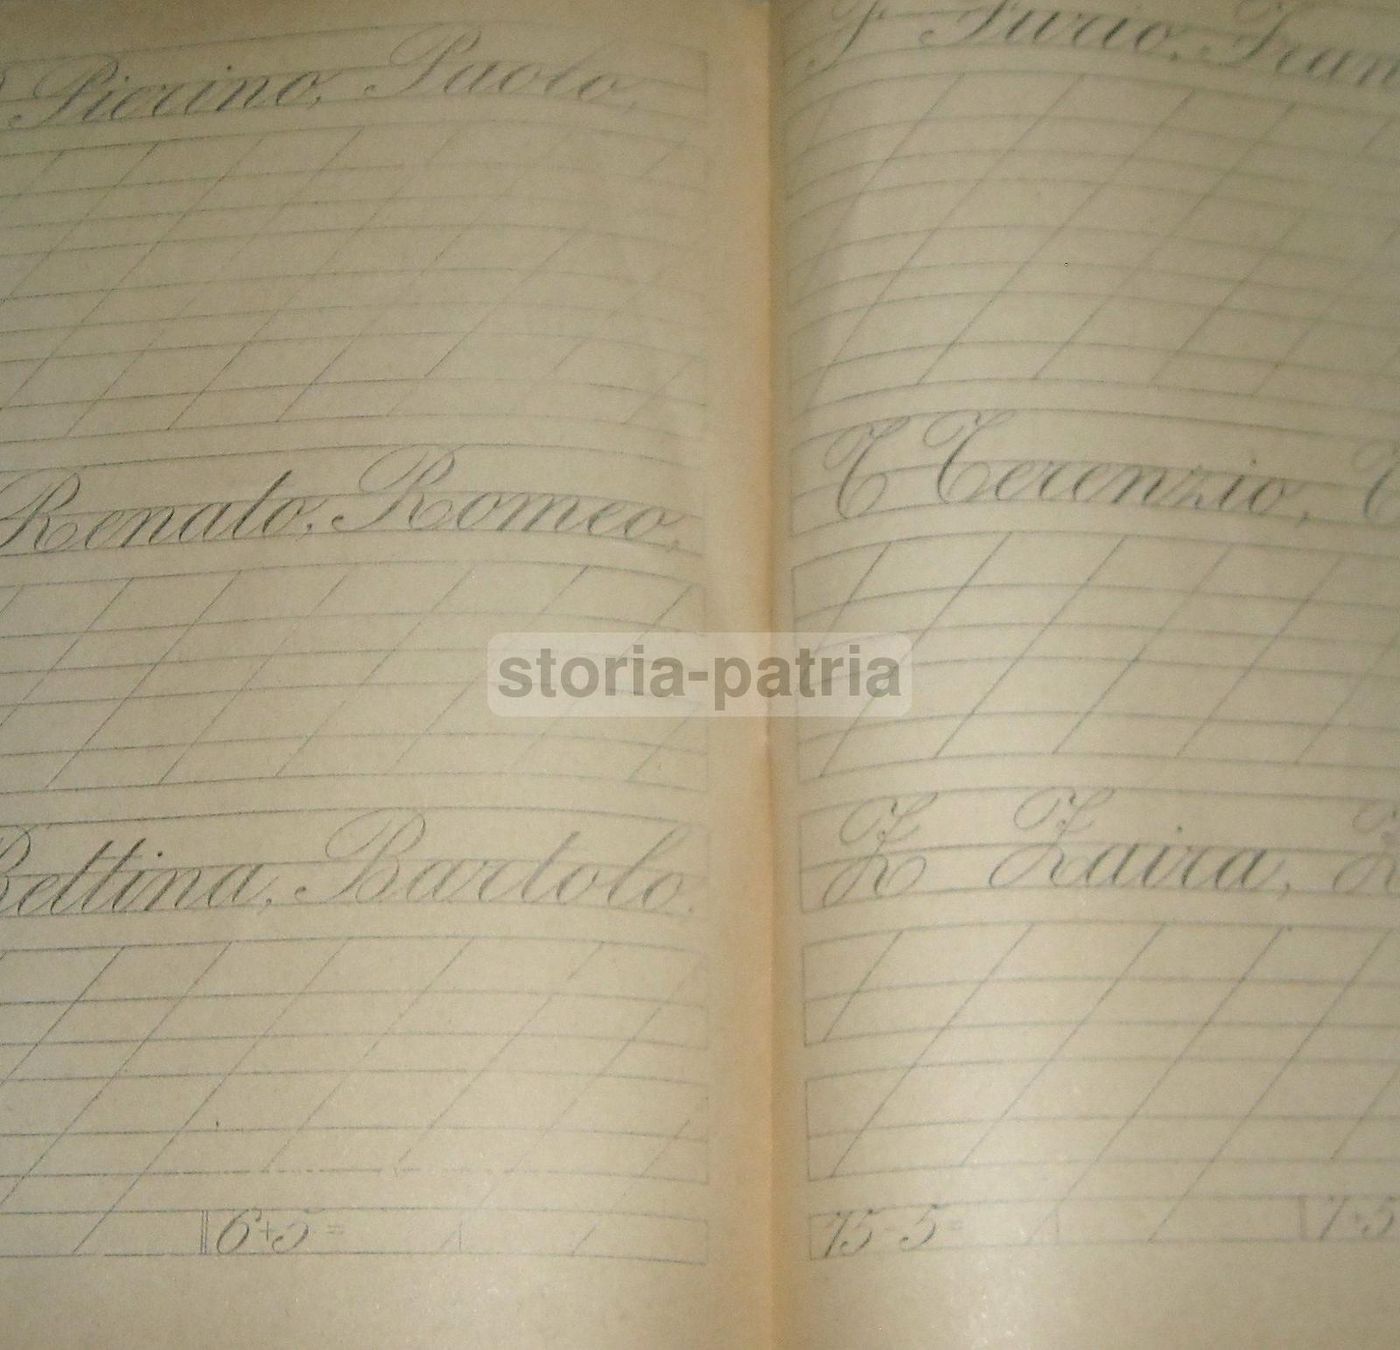 Pierino, Paolo,
Renato, Romeo,
Bettina, Bartolo,
6+5=
F Furio,
T Terenzio, T
Z Zaira, Z
15-5=
7+5
storia-patria